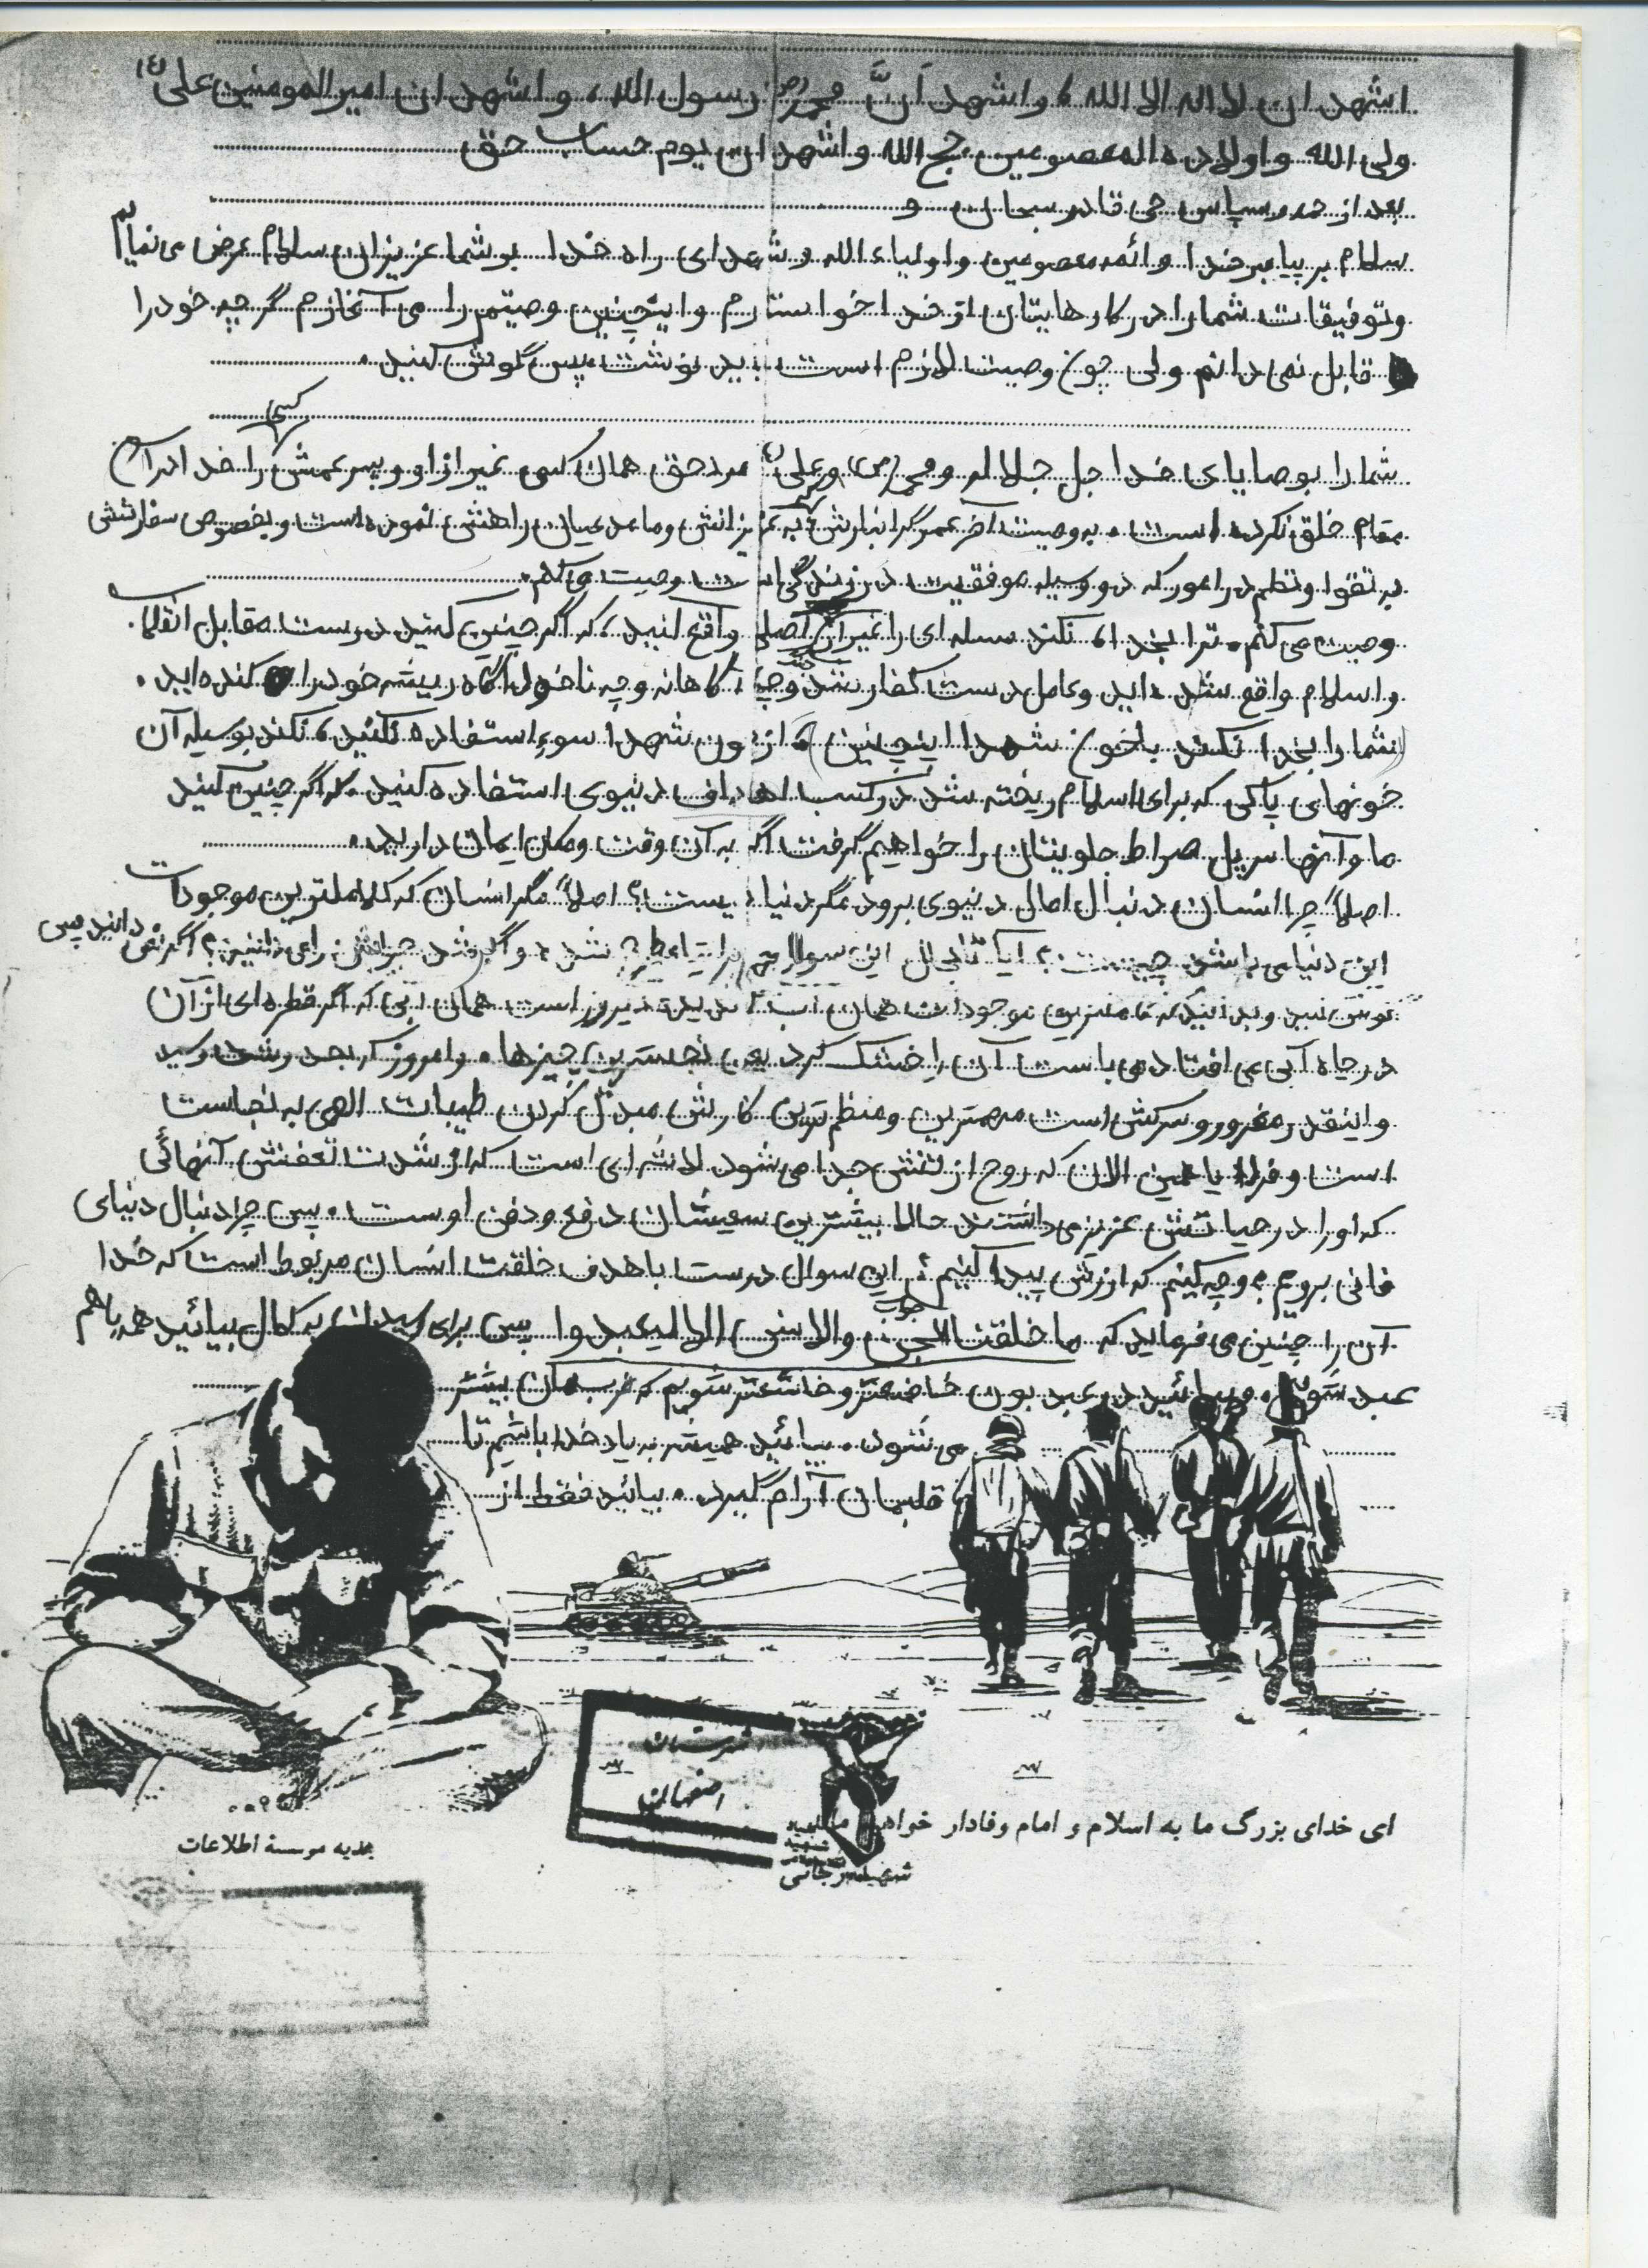 اشهد ان لا اله الا الله ، و اشهد اَنَّ محمد (ص) رسول الله ، و اشهد ان امیرالمومنین علی (ع)
ولی الله و اولاده المعصومین حجج الله و اشهد ان یوم حساب حق
بعد از حمد و سپاس حی قادر سبحان و
سلام بر پیامبر خدا و ائمه معصومین و اولیاء الله و شهدای راه خدا بر شما عزیزان سلام عرض می نمایم
و توفیقات شما را در کارهایتان از خدا خواستارم و اینچنین وصیتم را می آغازم گرچه خود را
قابل نمی دانم ولی چون وصیت لازم است باید نوشت پس گوش کنید .
شما را بوصایای خدا جل جلاله و محمد (ص) و علی (ع) مرد حق همان کسی غیر از او و پسر عمش کسی را خدا در آن
مقام خلق نکرده است . به وصیت آخر عمر گرانبارش که به عزیزانش و مدعیان راهش نموده است و بخصوص سفارشش
به تقوا و نظم در امور که دو وسیله موفقیت در زندگی است وصیت می کنم .
وصیت می کنم . ترا بخدا ، نکند مسله ای را غیر آن اصلی واقع کنید ، که اگر چنین کنید درست مقابل انقلاب
و اسلام واقع شده اید و عامل دست کفار شده و چه آگاهانه و چه ناخودآگاه ریشه خود را کنده اید .
(شما را بخدا نکند با خون شهدا اینچنین) از خون شهدا سوء استفاده نکنید ، نکند بوسیله آن
خونهای پاکی که برای اسلام ریخته شد در کسب اهداف دنیوی استفاده کنید . که اگر چنین کنید
ما و آنها سر پل صراط جلویتان را خواهیم گرفت اگر به آن وقت و مکان ایمان دارید .
اصلاً چرا انسان دنبال امال دنیوی برود مگر دنیا چیست ؟ اصلاً مگر انسان که کاملترین موجودات
این دنیا می باشد چیست ؟ آیا تا بحال این سوال برایتان مطرح شده و اگر شد جوابش را می دانید ؟ اگر نمی دانید پس
گوش کنید و بدانید که کاملترین موجودات همان آب گندیده دیروز است همان آبی که اگر قطره ای از آن
در چاه آبی می افتاد می باست آن را خشک کرد یعنی نجسترین چیزها . و امروز که بحد رشد رسید
و اینقدر مغرور و سرکش است مهمترین و منظم ترین کارش مبدل کردن طیبات الهی به نجاست
است و فردا یا همین الان که روح از تنش جدا می شود لاشه ای است که از شدت تعفنش آنهائی
که او را در حیاتش عزیز می داشتند حالا بیشترین سعیشان دفع و دفن اوست . پس چرا دنبال دنیای
فانی برویم ؟ و چه کنیم که ارزش پیدا کنیم ؟ این سوال درست با هدف خلقت انسان مربوط است که خدا
جواب آن را چنین می فرماید که ما خلقت الجن والانس الا لیعبدوا پس برای رسیدن به کمال بیائید همه با هم
عبد شویم . و بیائید در عبد بودن خاضعتر و خاشعتر شویم که قربمان بیشتر
می شود . بیائید همیشه به یاد خدا باشیم تا
قلبمان آرام گیرد . بیائید فقط از
شهرستان
اصفهان
ای خدای بزرگ ما به اسلام و امام وفادار
شهید رجائی
هدیه موسسهٔ اطلاعات